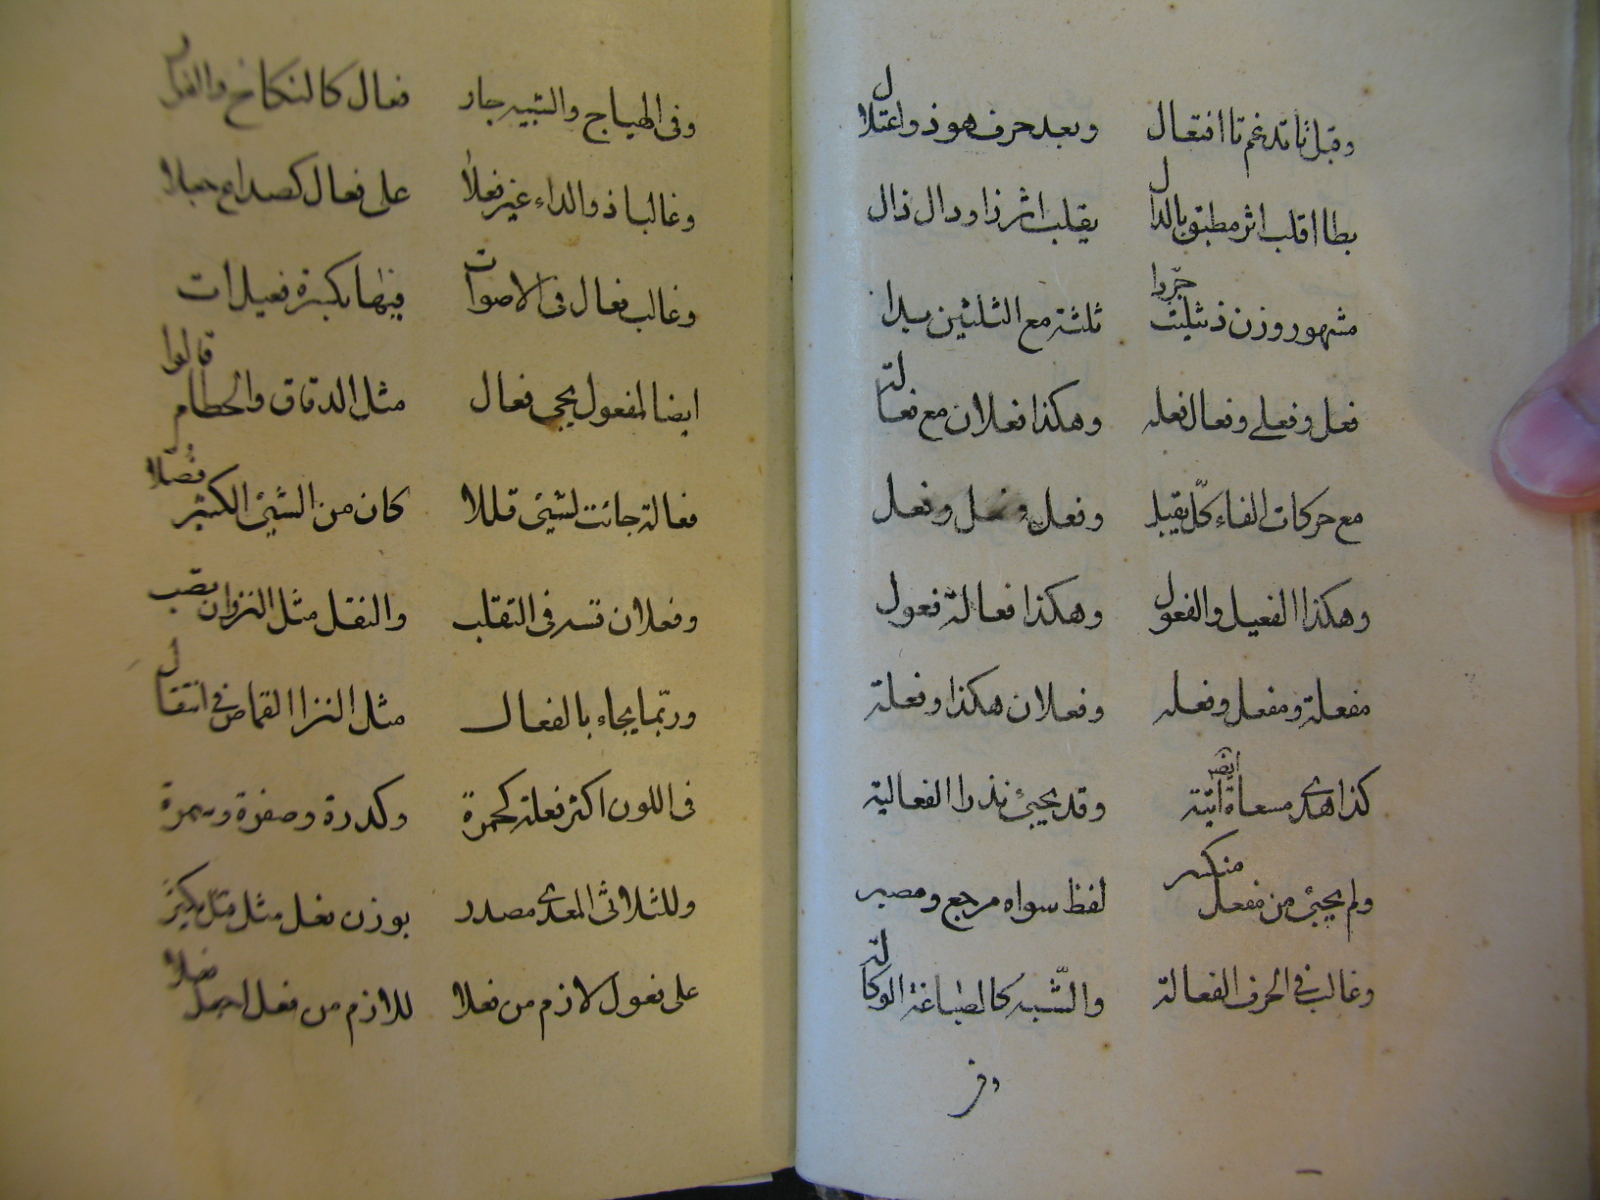 وقبل ثا تدغم تا افتعال وبعد حرف هوذ واعتلال
بطا اقلب اثر مطبق بالدال يقلب اثر زاودال ذال
مشهور وزن ذ ثليث جرّوا ثلثة مع الثلثين
فعل وفعلى وفعال فعله وهكذا فعلان مع فعالة
مع حركات الفاء كلّ يقبل وفعل وفعل وفعل
وهكذا الفعيل والفعول وهكذا فعالة فعول
مفعلة ومفعل وفعله وفعلان هكذا وفعلة
كذا هدى مسعاة ايضا اتية وقد يجيئ نذرا الفعالية
ولم يجيئ من مفعل منكسر لفظ سواه مرجع ومصير
وغالب فى الحرف الفعالة والشّبه كالصباغة الوكالة
وفى
وفى الهياج والشبيه جار فعال كالنكاح والفرار
وغالبا ذو الداء غير فعلا على فعال كصداع جعلا
وغالب فعال فى الاصوات فيها بكثرة فعيل ات
ايضا لمفعول يجى فعال مثل الدقاق والحطام قالوا
فعالة جائت لشيئ قللا كان من الشيئ الكثير فصّلا
وفعلان فى التقلب والنقل مثل النزوان
وربّما يجاء بالفعال مثل النزا القماص فى انتقال
فى اللون اكثر فعلة كحمرة وكدرة وصفرة وسمرة
وللثلاثى المعدى مصدر بوزن فعل مثل
على فعول لازم من فعلا للازم من فعل